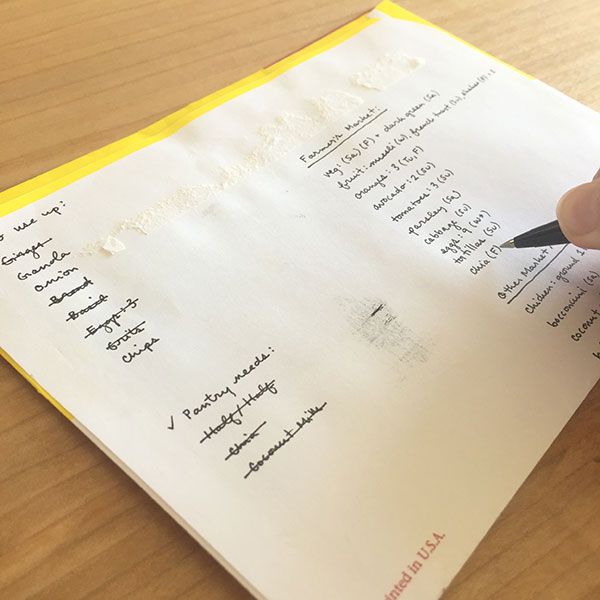 o use up:
Ginger
Granola
Onion
Bread
Basil
Eggs: 3
Grits
Chips
✓ Pantry needs:
Half/Half
Chia
Coconut Milk
Farmers Market:
veg: (Sa) (F) + dark green (Sa)
fruit: muesli (W), french toast (Su),
orange: 3 (Tu, F)
avocado: 2 (Su)
tomatoes: 3 (Su)
parsley (Sa)
cabbage (Su)
eggs: 9
tortillas (Su)
chia (F)
Other Market
chicken: ground 1
bocconcini (Sa)
coconut
inted in U.S.A.